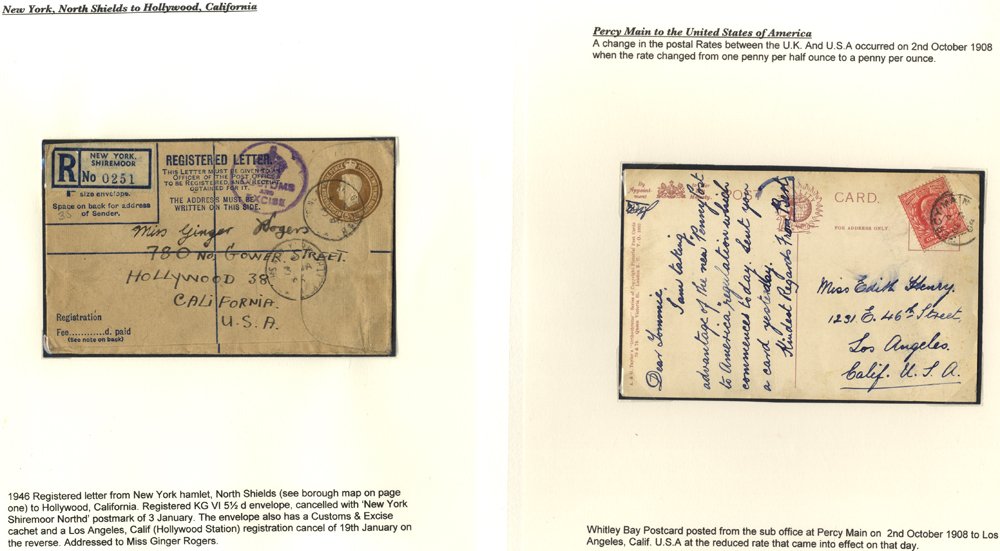 New York, North Shields to Hollywood, California
R
NEW YORK.
SHIREMOOR
No 0251
size envelope.
Space on back for address
of Sender.
35
REGISTERED LETTER.
THIS LETTER MUST BE GIVEN TO AN
OFFICER OF THE POST OFFICE
TO BE REGISTERED, AND A RECEIPT
OBTAINED FOR IT.
THE ADDRESS MUST BE
WRITTEN ON THIS SIDE.
CUSTOMS
AND
EXCISE
Miss Ginger Rogers
780 No, GOWER STREET.
HOLLYWOOD 38
CALIFORNIA.
U.S.A.
Registration
Fee............d. paid
(See note on back)
1946 Registered letter from New York hamlet, North Shields (see borough map on page
one) to Hollywood, California. Registered KG VI 5½ d envelope, cancelled with 'New York
Shiremoor Northd' postmark of 3 January. The envelope also has a Customs & Excise
cachet and a Los Angeles, Calif (Hollywood Station) registration cancel of 19th January on
the reverse. Addressed to Miss Ginger Rogers.
Percy Main to the United States of America
A change in the postal Rates between the U.K. And U.S.A occurred on 2nd October 1908
when the rate changed from one penny per half ounce to a penny per ounce.
By
Appoint-
ment
Majesty.
POST CARD.
FOR ADDRESS ONLY.
Dear Tommie.
I am taking
advantage of the new Penny Post
to America regulation which
commences today, sent you
a card yesterday.
Kindest Regards From Bent
Miss Edith Henry.
1231 E. 46th Street,
Los Angeles.
Calif. U.S.A.
Whitley Bay Postcard posted from the sub office at Percy Main on 2nd October 1908 to Los
Angeles, Calif. U.S.A at the reduced rate that came into effect on that day.